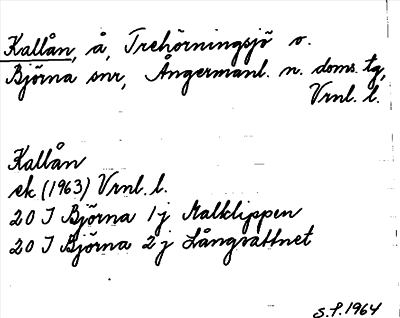 Kallån, å, Trehörningsjö o.
Björna snr, Ångermanl. n. doms. tg,
Vrnl. l.
Kallån
ek (1963) Vrnl. l.
20 I Björna 1 j Malklippen
20 I Björna 2 j Långvattnet
S.F. 1964